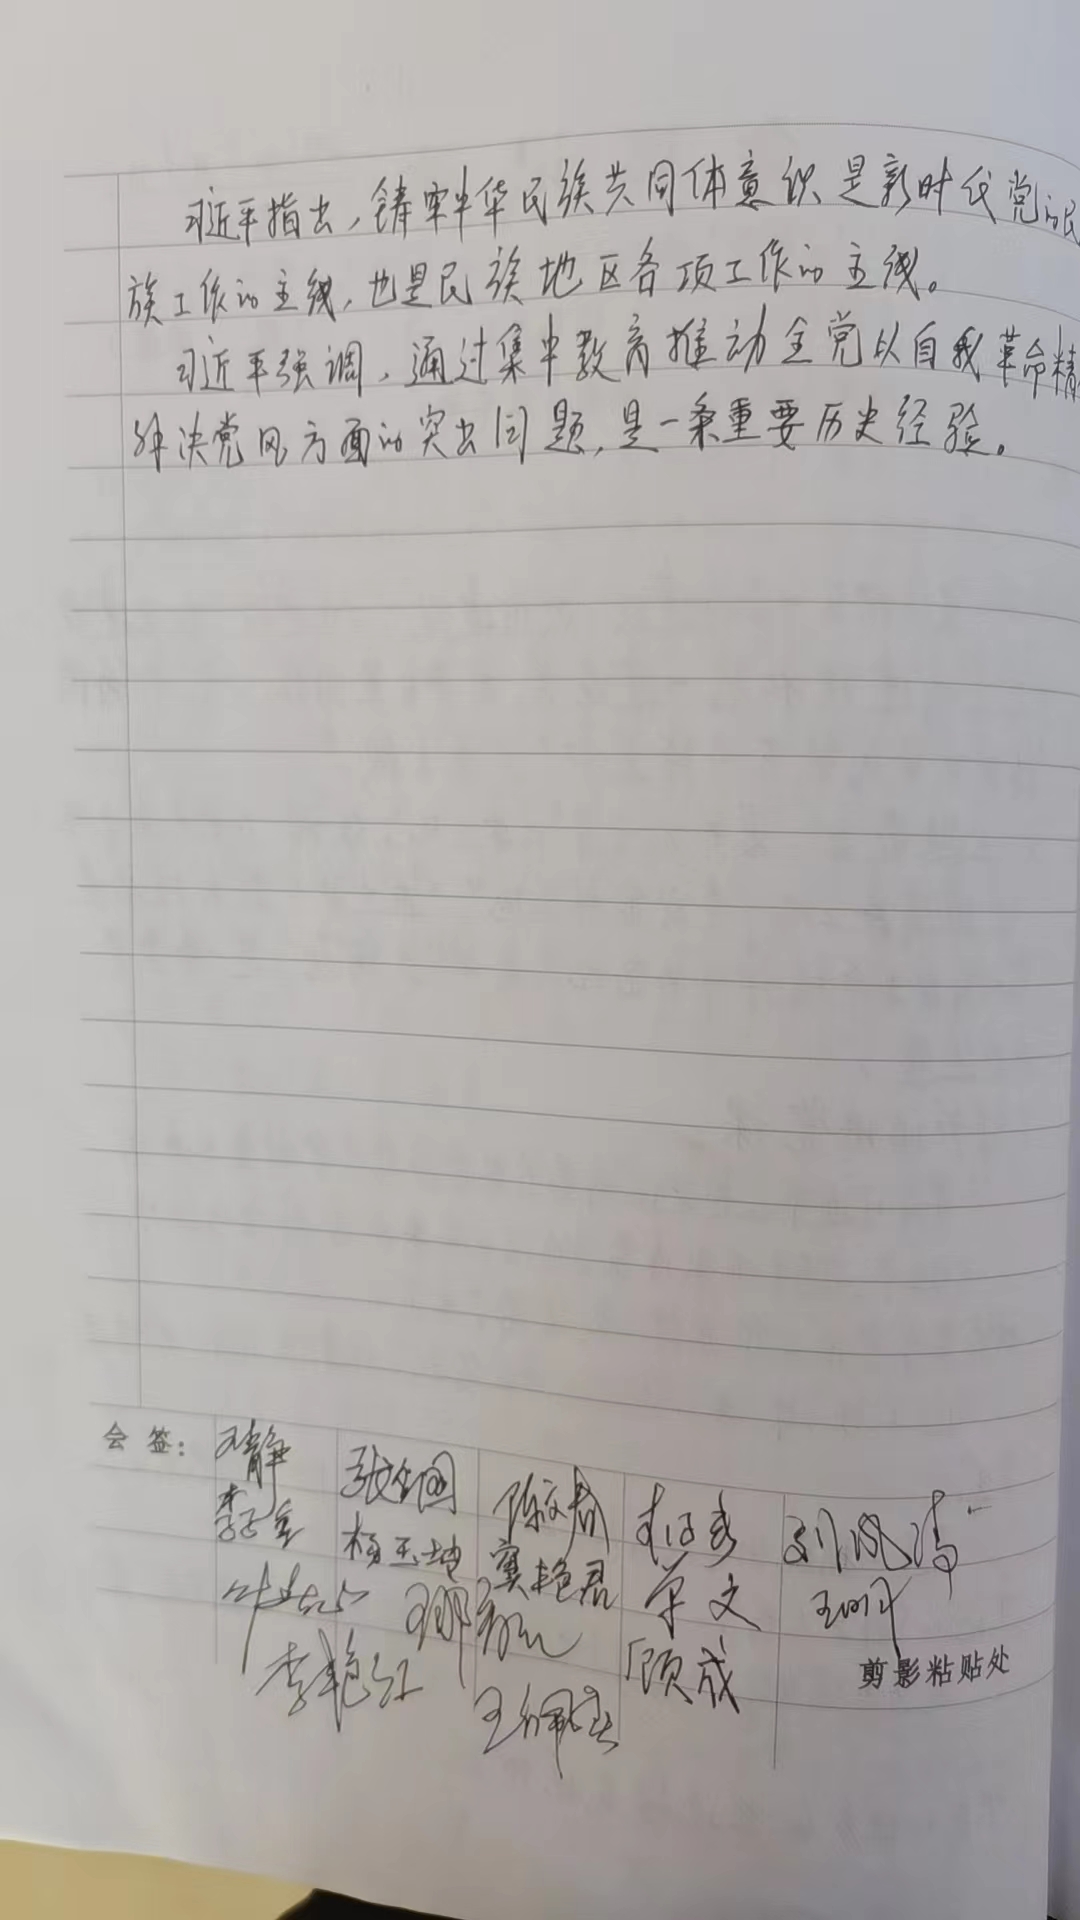 习近平指出，铸牢中华民族共同体意识是新时代党的民
族工作的主线，也是民族地区各项工作的主线。
习近平强调，通过集中教育推动全党以自我革命精
解决党风方面的突出问题，是一条重要历史经验。
会签：
王静
杨玉坤
窦艳君
李艳红
顾成
剪影粘贴处